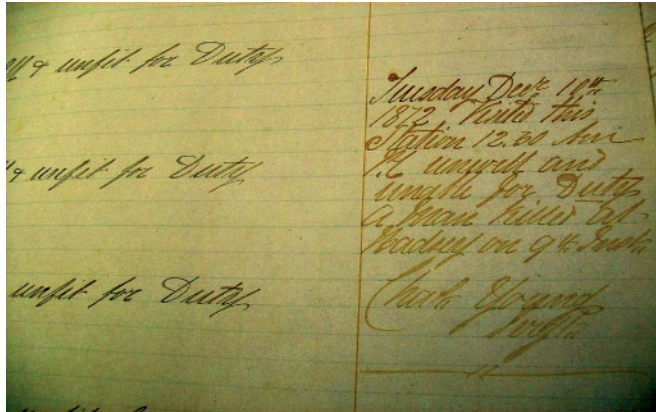 & unfit for Duty
& unfit for Duty
unfit for Duty
Tuesday Decr 10th
1872 Visited this
Station 12.30 Am
P.C unwell and
unable for Duty
a man killed at
on 9th Inst
Young